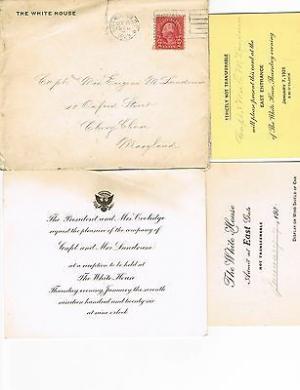 THE WHITE HOUSE
Capt. and Mrs. Eugene M.
Oxford Street
Chevy Chase
Maryland
STRICTLY NOT TRANSFERABLE
will please present this card at the
EAST ENTRANCE
of The White House, Thursday evening
January 7, 1926
The President and Mrs. Coolidge
request the pleasure of the company of
Capt. and Mrs.
at a reception to be held at
The White House
Thursday evening, January the seventh
nineteen hundred and twenty six
at nine o'clock
The White House
Admit at East Gate
NOT TRANSFERABLE
January 7, 192
DISPLAY ON WIND SHIELD OF CAR